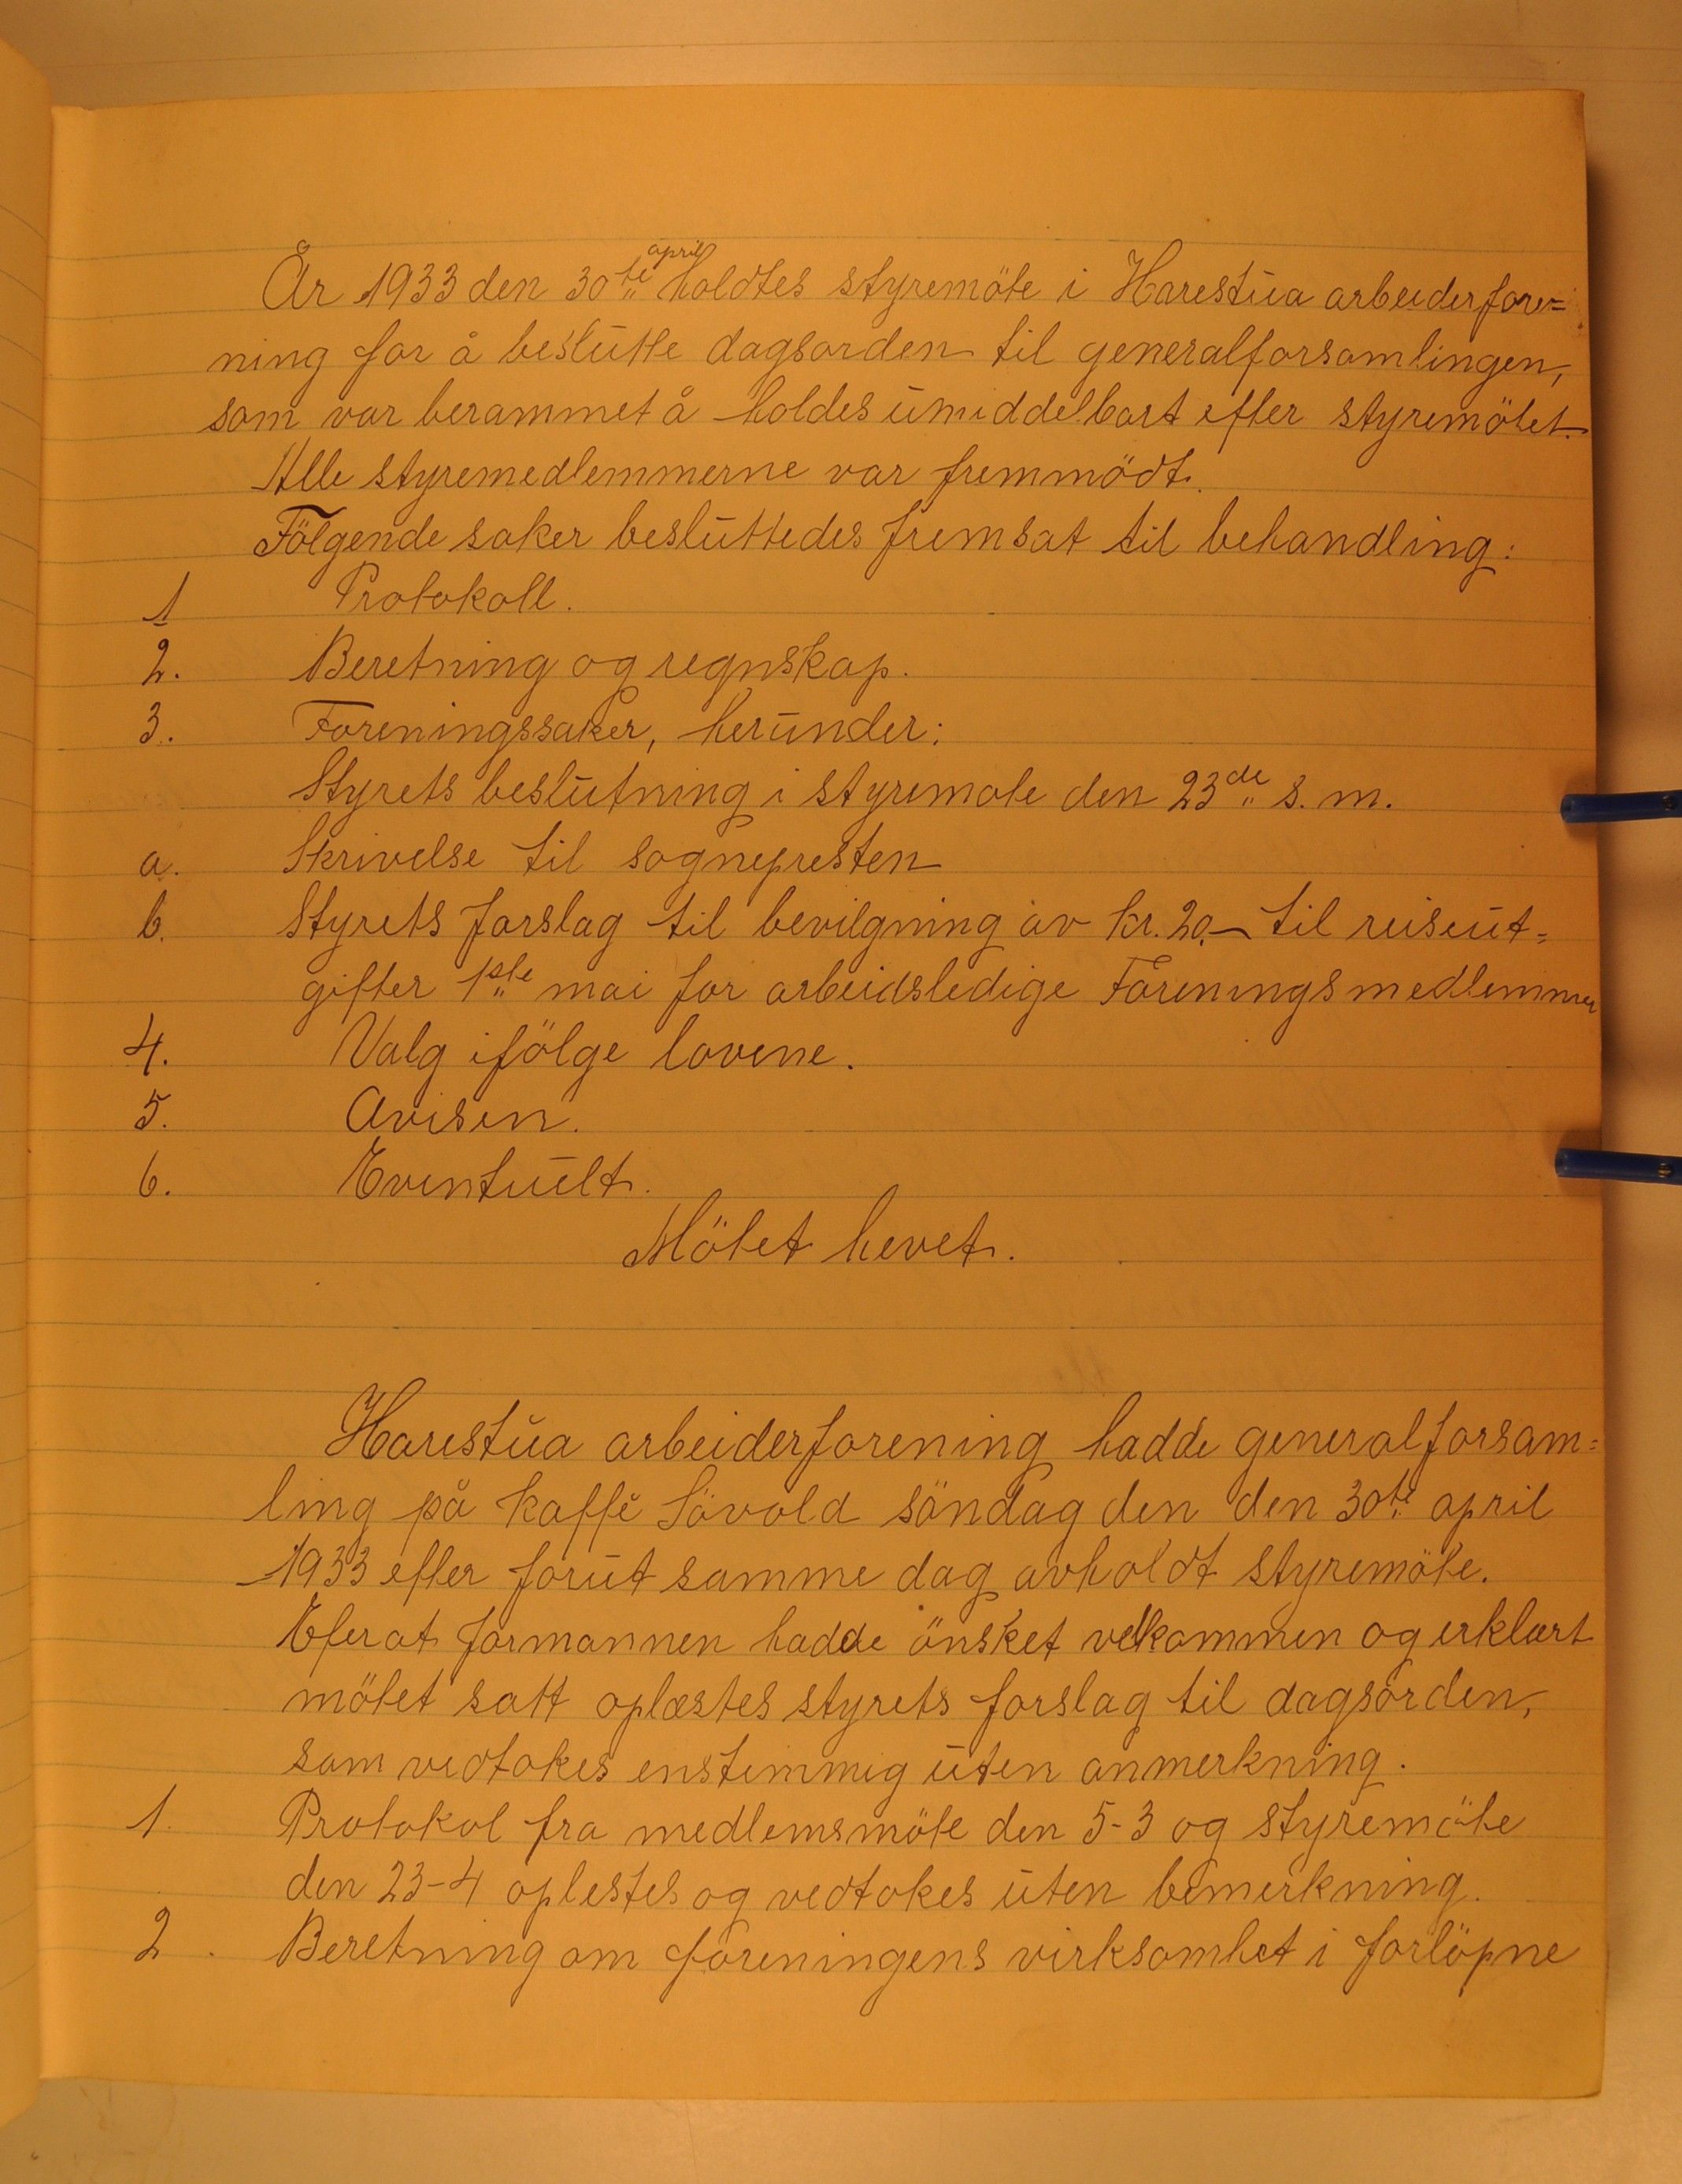 År 1933 den 30te april holdtes styremöte i Harestua arbeiderfore=
ning for å beslutte dagsorden til generalforsamlingen,
som var berammet å holdes umiddelbart efter styremötet.
Alle styremedlemmerne var fremmödt.
Fölgende saker besluttedes fremsat til behandling:
1 Protokoll.
2. Beretning og regnskap.
3. Foreningssaker, herunder:
Styrets beslutning i styremote den 23de s. m.
a. Skrivelse til sognepresten
b. Styrets forslag til bevilgning av kr. 20.- til reiseut=
gifter 1ste mai for arbeidsledige Foreningsmedlemmer
4. Valg ifölge lovene.
5. Avisen.
6. Eventuelt.
Mötet hevet.
Harestua arbeiderforening hadde generalforsam=
ling på kaffè Sövold söndag den den 30te april
1933 efter forut samme dag avholdt styremöte.
Eferat formannen hadde önsket velkommen og erklært
mötet satt oplæstes styrets forslag til dagsorden,
som vedtokes enstemmig uten anmerkning.
1. Protokol fra medlemsmöte den 5-3 og styremöte
den 23-4 oplestes og vedtokes uten bemerkning.
2. Beretning om foreningens virksomhet i forlöpne